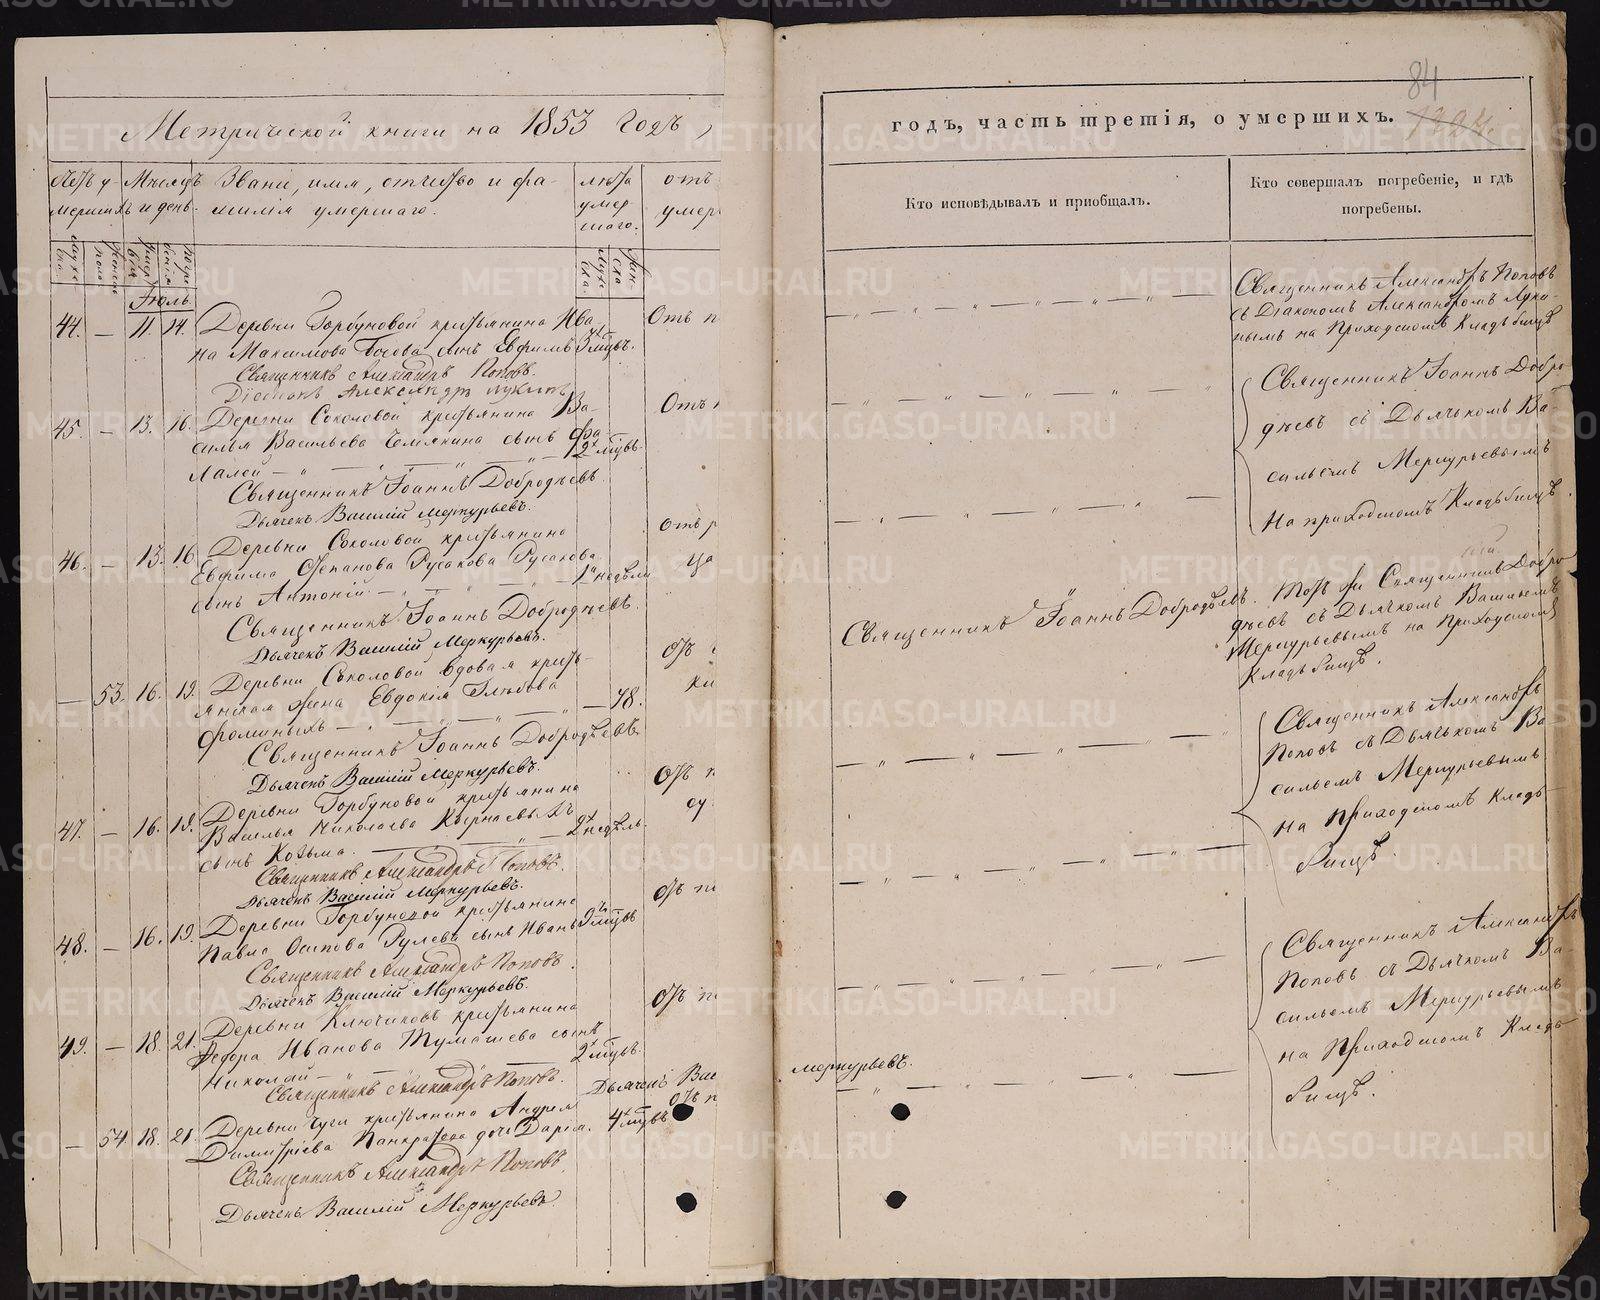 Метрической книги на 1853 годъ,
Звание, имя, отчество и фа-
милія умершаго.
лѣта
умер
шаго.
отъ
умер
Іюль
44. — 11. 14. Деревни Горбуновой крестьянина Ива
на Максимова сынъ Евфимъ 3 мѣсцъ.
Отъ п
Священникъ Александръ Поповъ.
Діаконъ Александръ Лукинъ
45. — 13. 16. Деревни Соколовой крестьянина Ва-
силья Васильева сынъ Фа
лалей — 2 мѣсцъ.
Отъ
Священникъ Іоаннъ Добродѣевъ.
Дьячекъ Василій Меркурьевъ.
46. — 13. 16. Деревни Соколовой крестьянина
Евфима Степанова Русакова
сынъ Антоній — 1 недѣли
Отъ р
Священникъ Іоаннъ Добродѣевъ.
Дьячекъ Василій Меркурьевъ.
— 53. 16. 19. Деревни Соколовой вдовая кресть-
янская жена Евдокія Глѣбова
Фоминыхъ — 48.
Отъ
Священникъ Іоаннъ Добродѣевъ.
Дьячекъ Василій Меркурьевъ.
47. — 16. 19. Деревни Горбуновой крестьянина
Василья Николаева
сынъ Козьма. — 2 недѣль.
Отъ п
Священникъ Александръ Поповъ.
Дьячекъ Василій Меркурьевъ.
48. — 16. 19. Деревни Горбуновой крестьянина
Павла Осипова Рулева сынъ Иванъ 9 мѣсцъ
Отъ по
Священникъ Александръ Поповъ.
Дьячекъ Василій Меркурьевъ.
49. — 18. 21. Деревни Ключиковъ крестьянина
Федора Иванова Тумашева сынъ
Николай — 2 мѣсцъ.
Отъ по
Священникъ Александръ Поповъ. Дьячекъ Вас
меркурьевъ.
— 54. 18. 21. Деревни крестьянина Андрея
Димитріева Панкратова дочь Дарія. 4 мѣсцъ
Отъ п
Священникъ Александръ Поповъ.
Дьячекъ Василій Меркурьевъ.
84
годъ, часть третія, о умершихъ.
Кто исповѣдывалъ и приобщалъ.
Кто совершалъ погребеніе, и гдѣ
погребены.
Священникъ Александръ Поповъ
съ Діакономъ Александромъ Луки-
нымъ на Приходскомъ Кладбищѣ
Священникъ Іоаннъ Добро-
дѣевъ съ Дьячкомъ Ва-
сильемъ Меркурьевымъ
На приходскомъ Кладбищѣ.
Священникъ Іоаннъ Добродѣевъ.
Тотъ же Священникъ Добро
дѣевъ съ Дьячкомъ Васильемъ
Меркурьевымъ на Приходскомъ
Кладбищѣ.
Священникъ Александръ
Поповъ съ Дьячкомъ Ва
сильемъ Меркурьевымъ
на Приходскомъ Клад-
бищѣ.
Священникъ Александръ
Поповъ съ Дьячкомъ Ва-
сильемъ Меркурьевымъ
на Приходскомъ Клад-
бищѣ.
METRIKI.GASO-URAL.RU